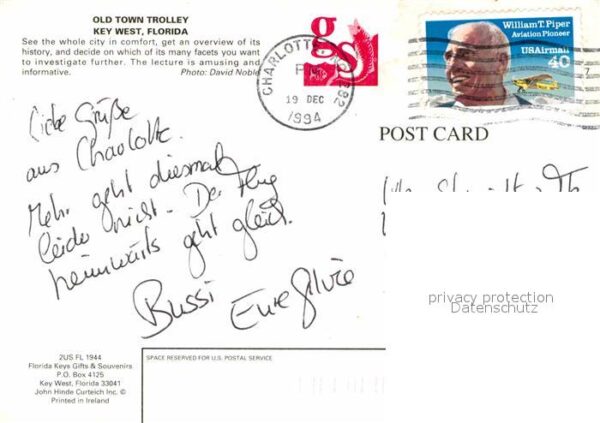 OLD TOWN TROLLEY
KEY WEST, FLORIDA
See the whole city in comfort, get an overview of its
history, and decide on which of its many facets you want
to investigate further. The lecture is amusing and
informative. Photo: David Noble
gs
CHARLOTTE
PM
19 DEC
1994
282
William T. Piper
Aviation Pioneer
USAirmail
40
POST CARD
Liebe Grüße
aus Charlotte.
Mehr geht diesmal
leider nicht - Der Flug
heimwärts geht gleich.
Bussi Eure Silvia
privacy protection
Datenschutz
2US FL 1944
Florida Keys Gifts & Souvenirs
P.O. Box 4125
Key West, Florida 33041
John Hinde Curteich Inc. ©
Printed in Ireland
SPACE RESERVED FOR U.S. POSTAL SERVICE